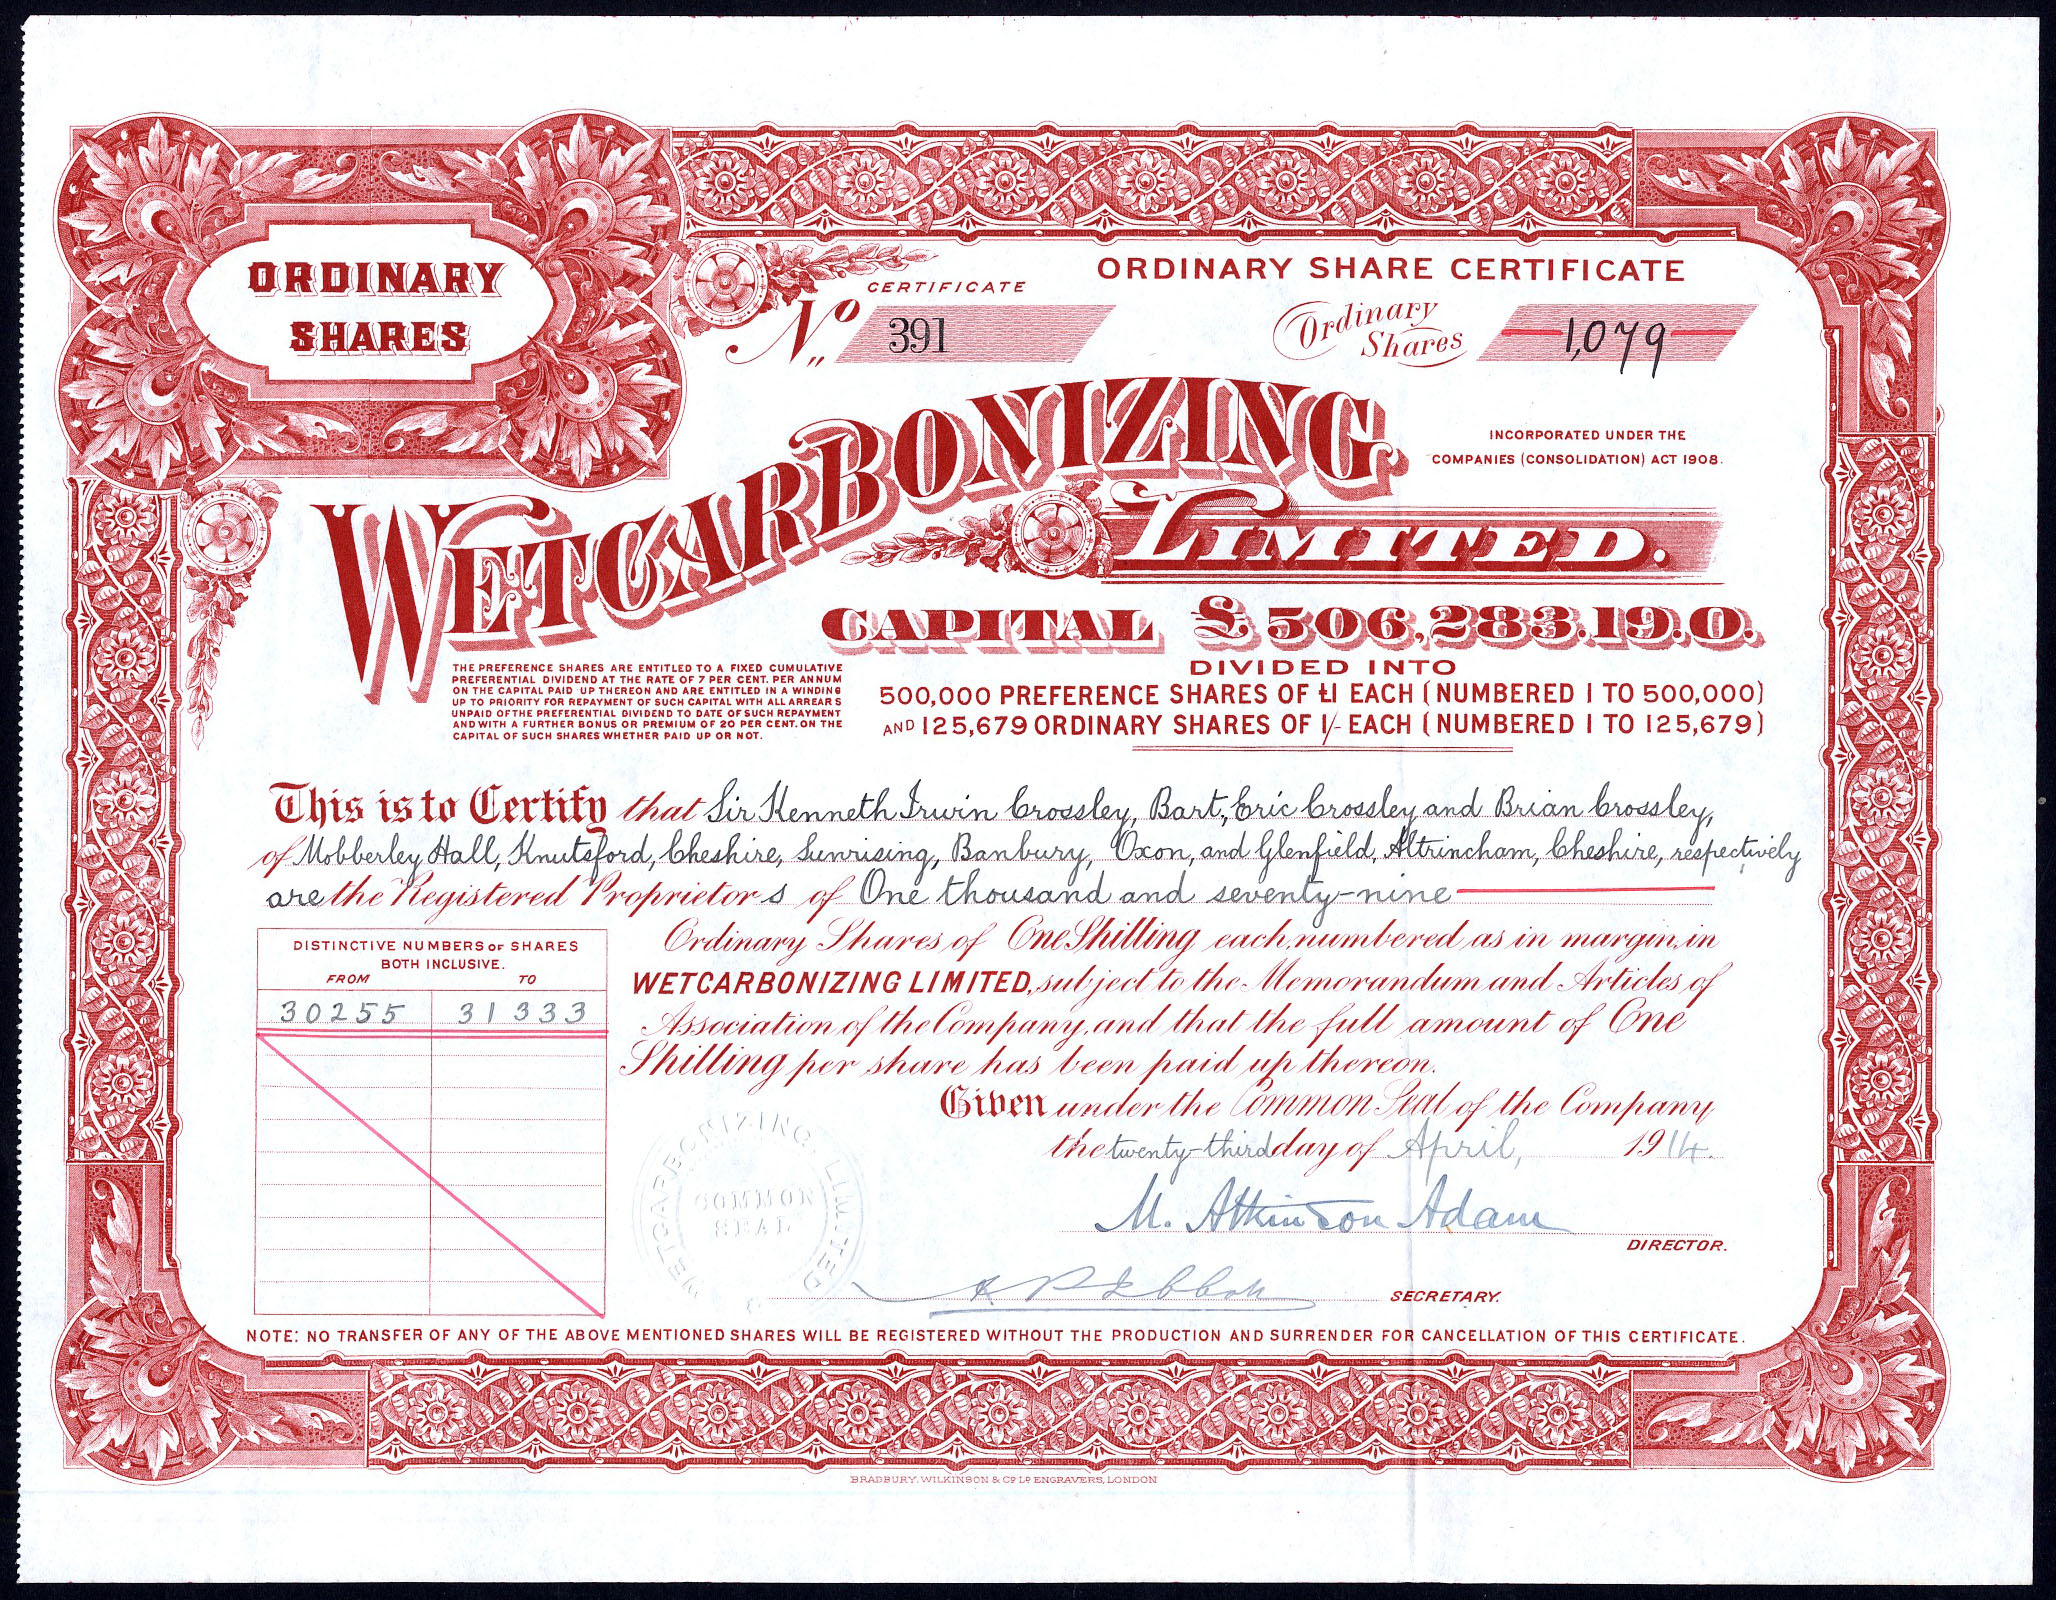 ORDINARY
SHARES
ORDINARY SHARE CERTIFICATE
CERTIFICATE
No 391
Ordinary
Shares
1,079
WETCARBONIZING
LIMITED.
INCORPORATED UNDER THE
COMPANIES (CONSOLIDATION) ACT 1908.
CAPITAL £506,283.19.0.
DIVIDED INTO
500,000 PREFERENCE SHARES OF £1 EACH (NUMBERED 1 TO 500,000)
AND 125,679 ORDINARY SHARES OF 1/- EACH (NUMBERED 1 TO 125,679)
THE PREFERENCE SHARES ARE ENTITLED TO A FIXED CUMULATIVE
PREFERENTIAL DIVIDEND AT THE RATE OF 7 PER CENT. PER ANNUM
ON THE CAPITAL PAID UP THEREON AND ARE ENTITLED IN A WINDING
UP TO PRIORITY FOR REPAYMENT OF SUCH CAPITAL WITH ALL ARREARS
UNPAID OF THE PREFERENTIAL DIVIDEND TO DATE OF SUCH REPAYMENT
AND WITH A FURTHER BONUS OR PREMIUM OF 20 PER CENT. ON THE
CAPITAL OF SUCH SHARES WHETHER PAID UP OR NOT.
This is to Certify that Sir Kenneth Irwin Crossley, Bart., Eric Crossley and Brian Crossley,
of Mobberley Hall, Knutsford, Cheshire, Sunrising, Banbury, Oxon, and Glenfield, Altrincham, Cheshire, respectively
are the Registered Proprietors of One thousand and seventy-nine
Ordinary Shares of One Shilling each, numbered as in margin, in
WETCARBONIZING LIMITED, subject to the Memorandum and Articles of
Association of the Company, and that the full amount of One
Shilling per share has been paid up thereon.
DISTINCTIVE NUMBERS OF SHARES
BOTH INCLUSIVE.
FROM TO
30255 31333
Given under the Common Seal of the Company
the twenty-third day of April, 1914.
WETCARBONIZING LIMITED
COMMON
SEAL
M. Atkinson Adam
DIRECTOR.
SECRETARY.
NOTE: NO TRANSFER OF ANY OF THE ABOVE MENTIONED SHARES WILL BE REGISTERED WITHOUT THE PRODUCTION AND SURRENDER FOR CANCELLATION OF THIS CERTIFICATE.
BRADBURY, WILKINSON & Co. Ld. ENGRAVERS, LONDON